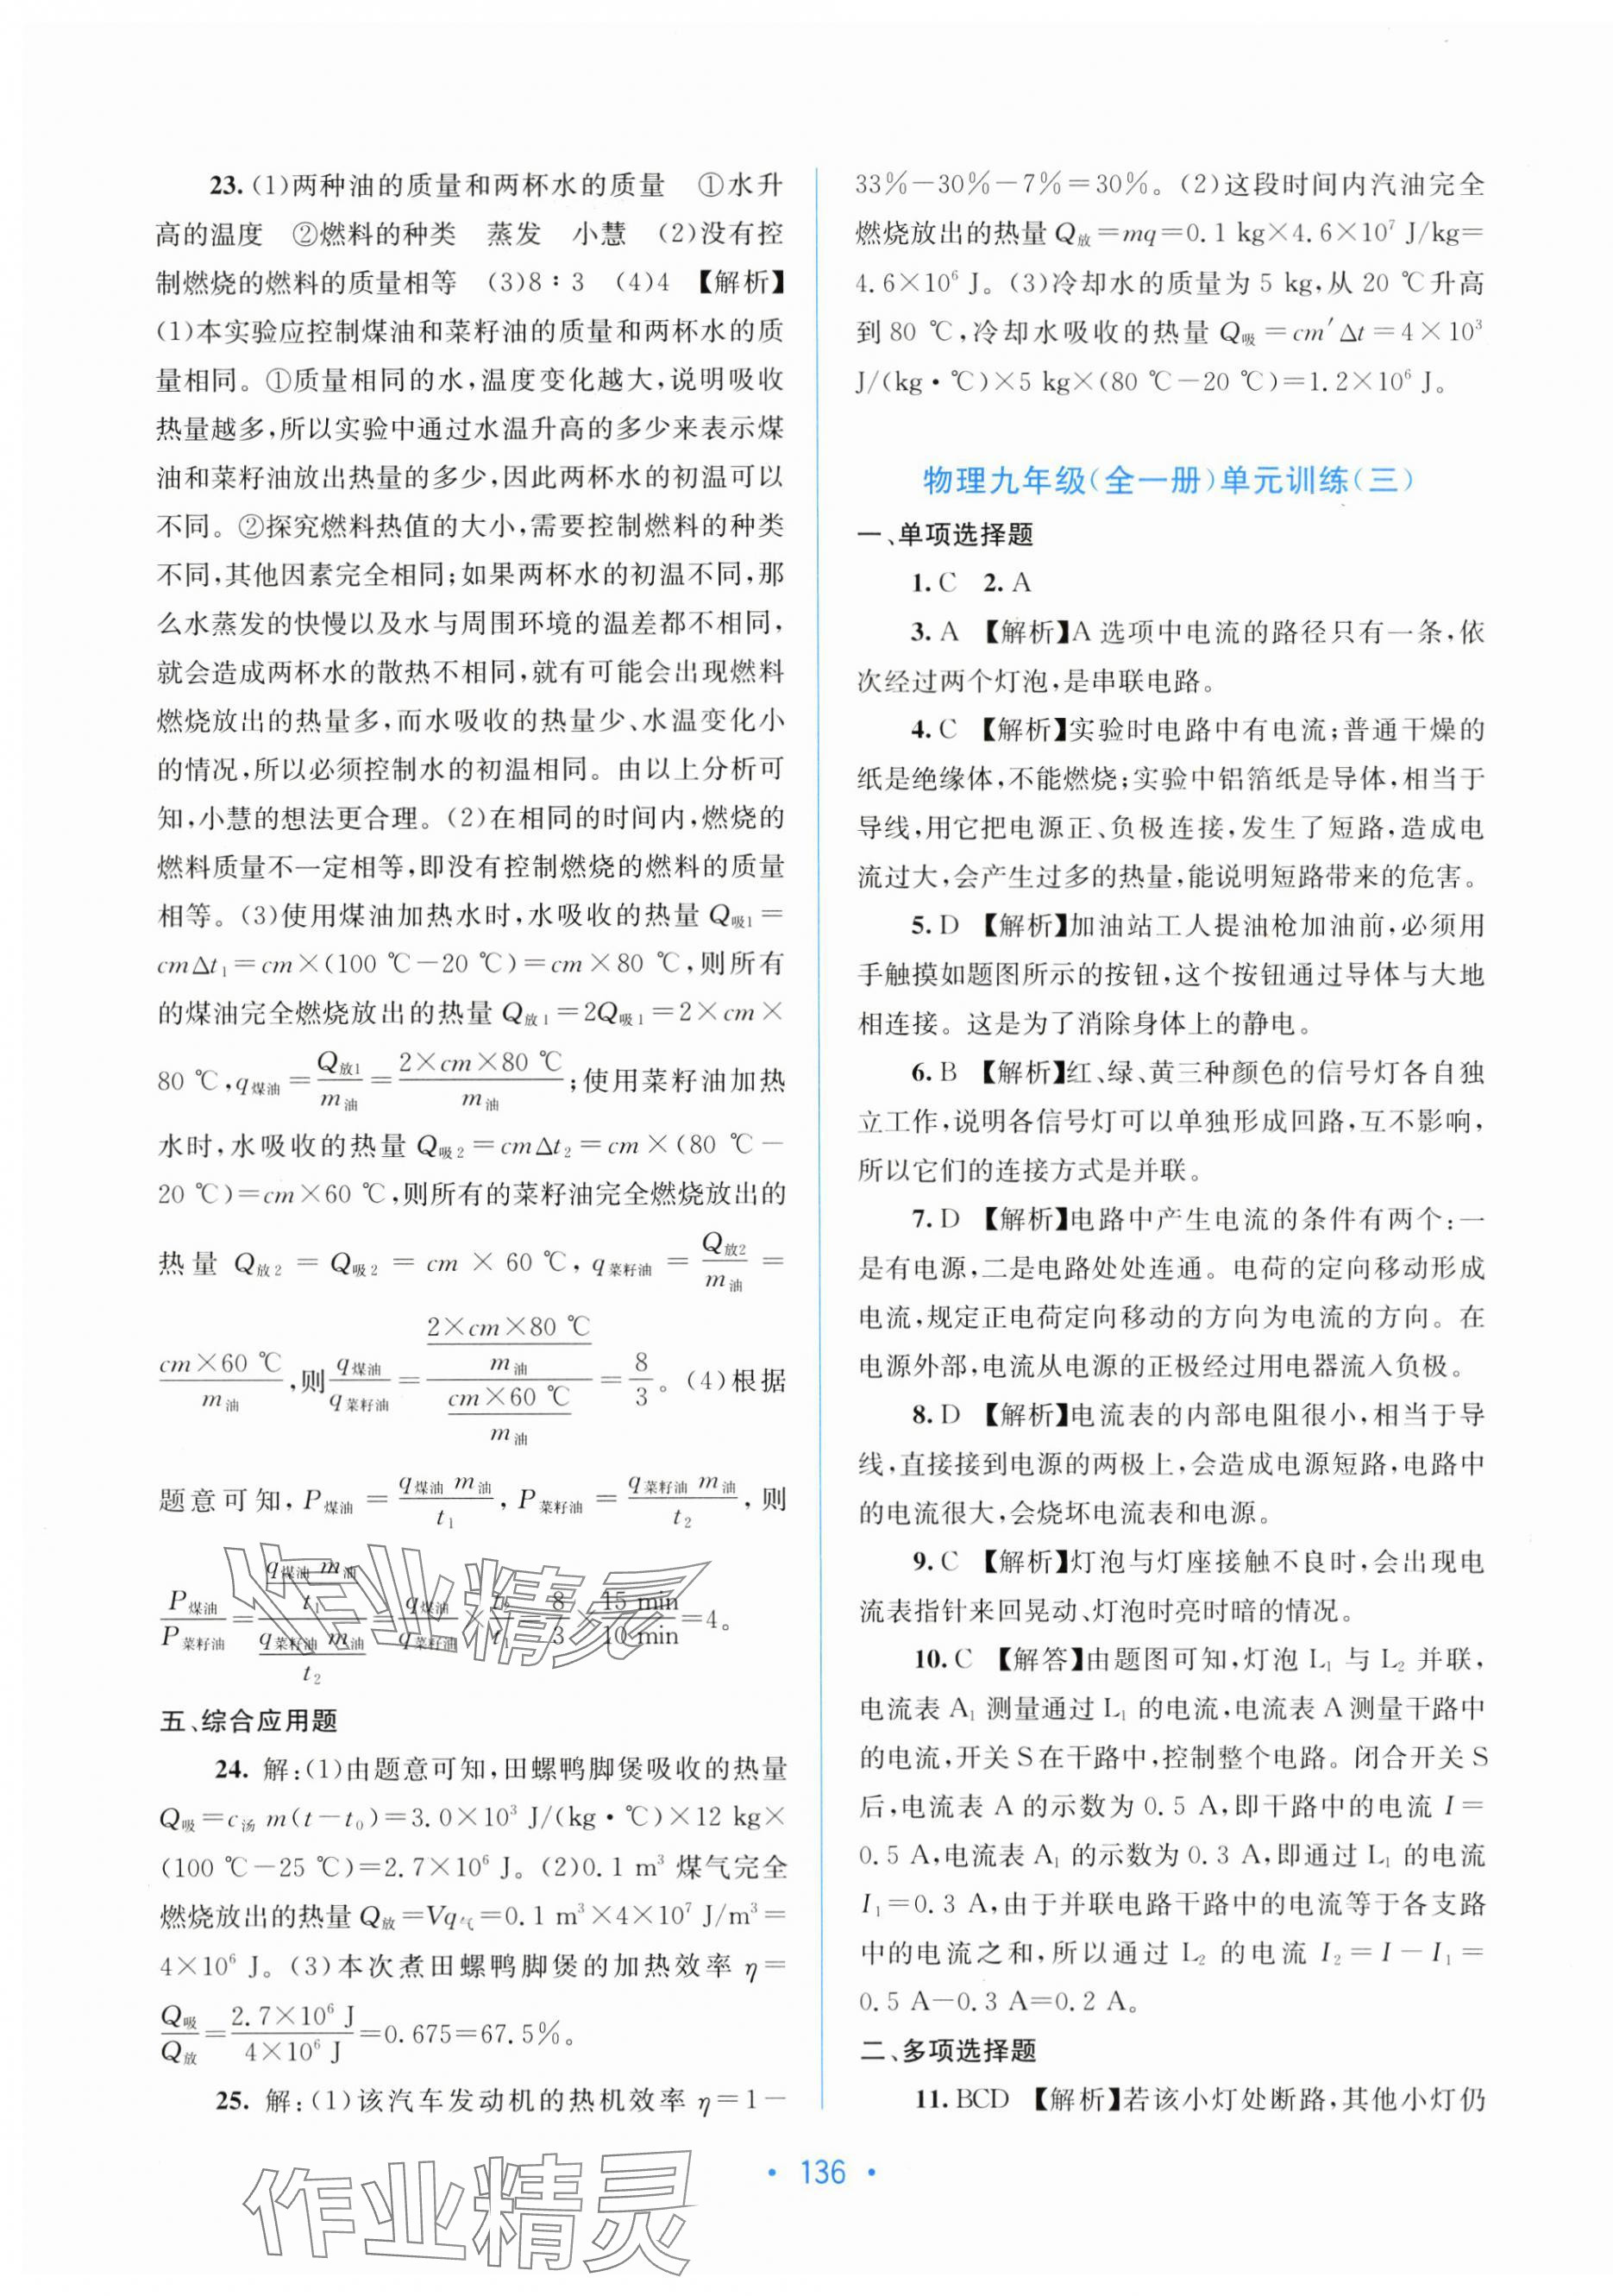 23. (1)两种油的质量和两杯水的质量 ①水升
高的温度 ②燃料的种类 蒸发 小慧 (2)没有控
制燃烧的燃料的质量相等 (3)8∶3 (4)4 【解析】
(1)本实验应控制煤油和菜籽油的质量和两杯水的质
量相同。①质量相同的水,温度变化越大,说明吸收
热量越多,所以实验中通过水温升高的多少来表示煤
油和菜籽油放出热量的多少,因此两杯水的初温可以
不同。②探究燃料热值的大小,需要控制燃料的种类
不同,其他因素完全相同;如果两杯水的初温不同,那
么水蒸发的快慢以及水与周围环境的温差都不相同,
就会造成两杯水的散热不相同,就有可能会出现燃料
燃烧放出的热量多,而水吸收的热量少、水温变化小
的情况,所以必须控制水的初温相同。由以上分析可
知,小慧的想法更合理。(2)在相同的时间内,燃烧的
燃料质量不一定相等,即没有控制燃烧的燃料的质量
相等。(3)使用煤油加热水时,水吸收的热量 Q吸1=
cmΔt₁=cm×(100 ℃-20 ℃)=cm×80 ℃,则所有
的煤油完全燃烧放出的热量 Q放1=2Q吸1=2×cm×
80 ℃,q煤油=Q放1/m油=2×cm×80 ℃/m油;使用菜籽油加热
水时,水吸收的热量 Q吸2=cmΔt₂=cm×(80 ℃-
20 ℃)=cm×60 ℃,则所有的菜籽油完全燃烧放出的
热量 Q放2=Q吸2=cm×60 ℃,q菜籽油=Q放2/m油=
cm×60 ℃/m油,则q煤油/q菜籽油=(2×cm×80 ℃/m油)/(cm×60 ℃/m油)=8/3。(4)根据
题意可知,P煤油=q煤油 m油/t₁,P菜籽油=q菜籽油 m油/t₂,则
P煤油/P菜籽油=(q煤油 m油/t₁)/(q菜籽油 m油/t₂)=q煤油/q菜籽油×t₂/t₁=8/3×15 min/10 min=4。
五、综合应用题
24. 解:(1)由题意可知,田螺鸭脚煲吸收的热量
Q吸=c汤 m(t-t₀)=3.0×10³ J/(kg·℃)×12 kg×
(100 ℃-25 ℃)=2.7×10⁶ J。(2)0.1 m³ 煤气完全
燃烧放出的热量 Q放=Vq气=0.1 m³×4×10⁷ J/m³=
4×10⁶ J。(3)本次煮田螺鸭脚煲的加热效率 η=
Q吸/Q放=2.7×10⁶ J/4×10⁶ J=0.675=67.5%。
25. 解:(1)该汽车发动机的热机效率 η=1-
33%-30%-7%=30%。(2)这段时间内汽油完全
燃烧放出的热量 Q放=mq=0.1 kg×4.6×10⁷ J/kg=
4.6×10⁶ J。(3)冷却水的质量为 5 kg,从 20 ℃升高
到 80 ℃,冷却水吸收的热量 Q吸=cm′Δt=4×10³
J/(kg·℃)×5 kg×(80 ℃-20 ℃)=1.2×10⁶ J。
物理九年级(全一册)单元训练(三)
一、单项选择题
1. C 2. A
3. A 【解析】A 选项中电流的路径只有一条,依
次经过两个灯泡,是串联电路。
4. C 【解析】实验时电路中有电流;普通干燥的
纸是绝缘体,不能燃烧;实验中铝箔纸是导体,相当于
导线,用它把电源正、负极连接,发生了短路,造成电
流过大,会产生过多的热量,能说明短路带来的危害。
5. D 【解析】加油站工人提油枪加油前,必须用
手触摸如题图所示的按钮,这个按钮通过导体与大地
相连接。这是为了消除身体上的静电。
6. B 【解析】红、绿、黄三种颜色的信号灯各自独
立工作,说明各信号灯可以单独形成回路,互不影响,
所以它们的连接方式是并联。
7. D 【解析】电路中产生电流的条件有两个:一
是有电源,二是电路处处连通。电荷的定向移动形成
电流,规定正电荷定向移动的方向为电流的方向。在
电源外部,电流从电源的正极经过用电器流入负极。
8. D 【解析】电流表的内部电阻很小,相当于导
线,直接接到电源的两极上,会造成电源短路,电路中
的电流很大,会烧坏电流表和电源。
9. C 【解析】灯泡与灯座接触不良时,会出现电
流表指针来回晃动、灯泡时亮时暗的情况。
10. C 【解答】由题图可知,灯泡 L₁ 与 L₂ 并联,
电流表 A₁ 测量通过 L₁ 的电流,电流表 A 测量干路中
的电流,开关 S 在干路中,控制整个电路。闭合开关 S
后,电流表 A 的示数为 0.5 A,即干路中的电流 I=
0.5 A,电流表 A₁ 的示数为 0.3 A,即通过 L₁ 的电流
I₁=0.3 A,由于并联电路干路中的电流等于各支路
中的电流之和,所以通过 L₂ 的电流 I₂=I-I₁=
0.5 A-0.3 A=0.2 A。
二、多项选择题
11. BCD 【解析】若该小灯处断路,其他小灯仍
· 136 ·
作业精灵
作业精灵